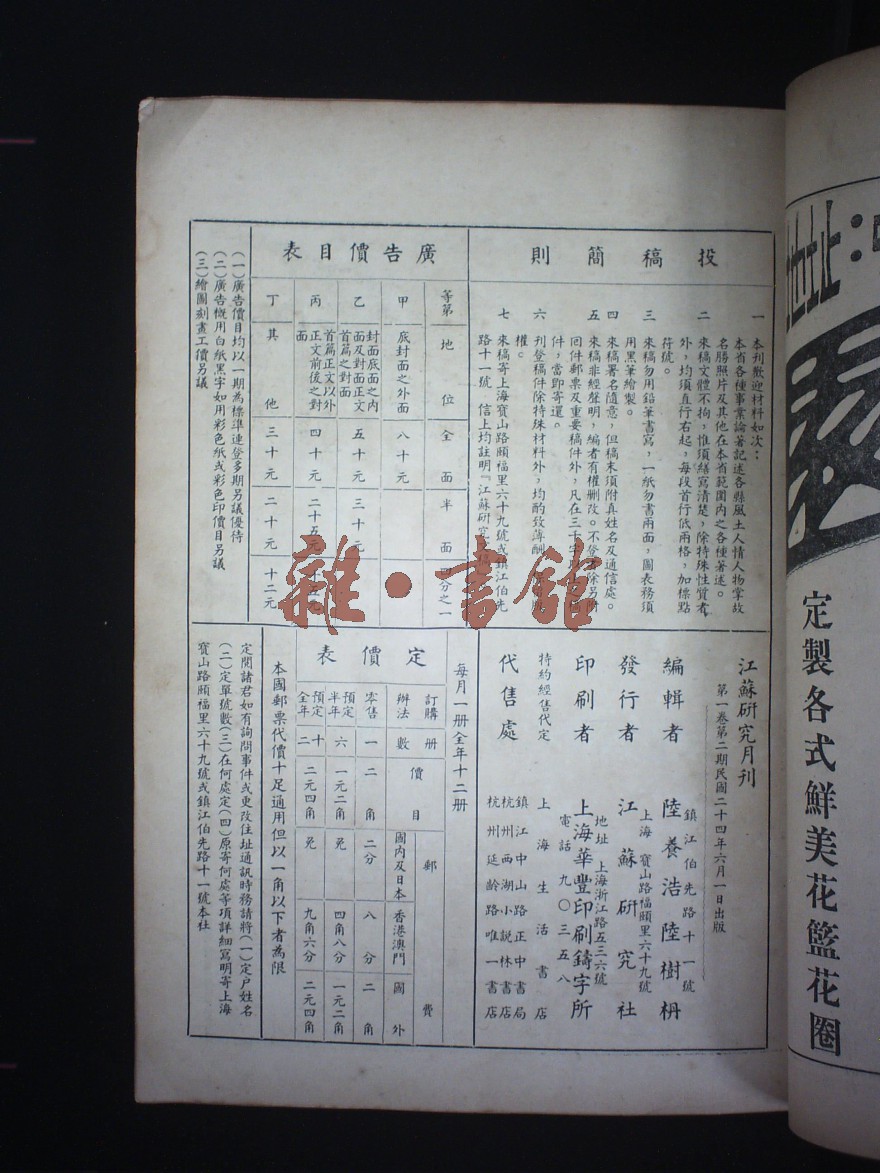 投稿簡則
一 本刊歡迎材料如次：
本省各種事業論著記述各縣風土人情人物掌故
名勝照片及其他在本省範圍內之各種著述。
二 來稿文體不拘，惟須繕寫清楚，除特殊性質者
外，均須直行右起，每段首行低兩格，加標點
符號。
三 來稿勿用鉛筆書寫，一紙勿書兩面，圖表務須
用黑筆繪製。
四 來稿署名隨意，但稿末須附真姓名及通信處。
五 來稿非經聲明，編者有權刪改。不登者除另附
回件郵票及重要稿件外，凡在三千字以
件，當即寄還。
六 刊登稿件除特殊材料外，均酌致薄酬
權。
七 來稿寄上海寶山路頤福里六十九號或鎮江伯先
路十一號 信上均註明『江蘇研究
廣告價目表
等第 地位 全面 半面 四分之一
甲 底封面之外面 八十元
乙 封面底面之內面及對面正文首篇之對面 五十元 三十元
丙 首篇正文以外正文前後之對面 四十元 二十五元 十五元
丁 其他 三十元 二十元 十二元
(一)廣告價目均以一期為標準連登多期另議優待
(二)廣告概用白紙黑字如用彩色紙或彩色印價目另議
(三)繪圖刻畫工價另議
江蘇研究月刊
第一卷第二期民國二十四年六月一日出版
編輯者 陸養浩 陸樹枏
鎮江伯先路十一號
發行者 江蘇研究社
上海寶山路頤福里六十九號
印刷者 上海華豐印刷鑄字所
地址 上海浙江路五三六號
電話 九〇三五八
特約經售代定 上海生活書店
代售處
鎮江中山路正中書局
杭州西湖小說林書店
杭州延齡路唯一書店
每月一册全年十二册
定價表
訂購辦法 册數 價目 郵費
國內及日本 香港澳門 國外
零售 一 二角 二分 八分 二角
預定半年 六 一元二角 免 四角八分 一元二角
預定全年 十二 二元四角 免 九角六分 二元四角
本國郵票代價十足通用但以一角以下者為限
定閱諸君如有詢問事件或更改住址通訊時務請將(一)定戶姓名
(二)定單號數(三)在何處定(四)原寄何處等項詳細寫明寄上海
寶山路頤福里六十九號或鎮江伯先路十一號本社
定製各式鮮美花籃花圈
雜·書館